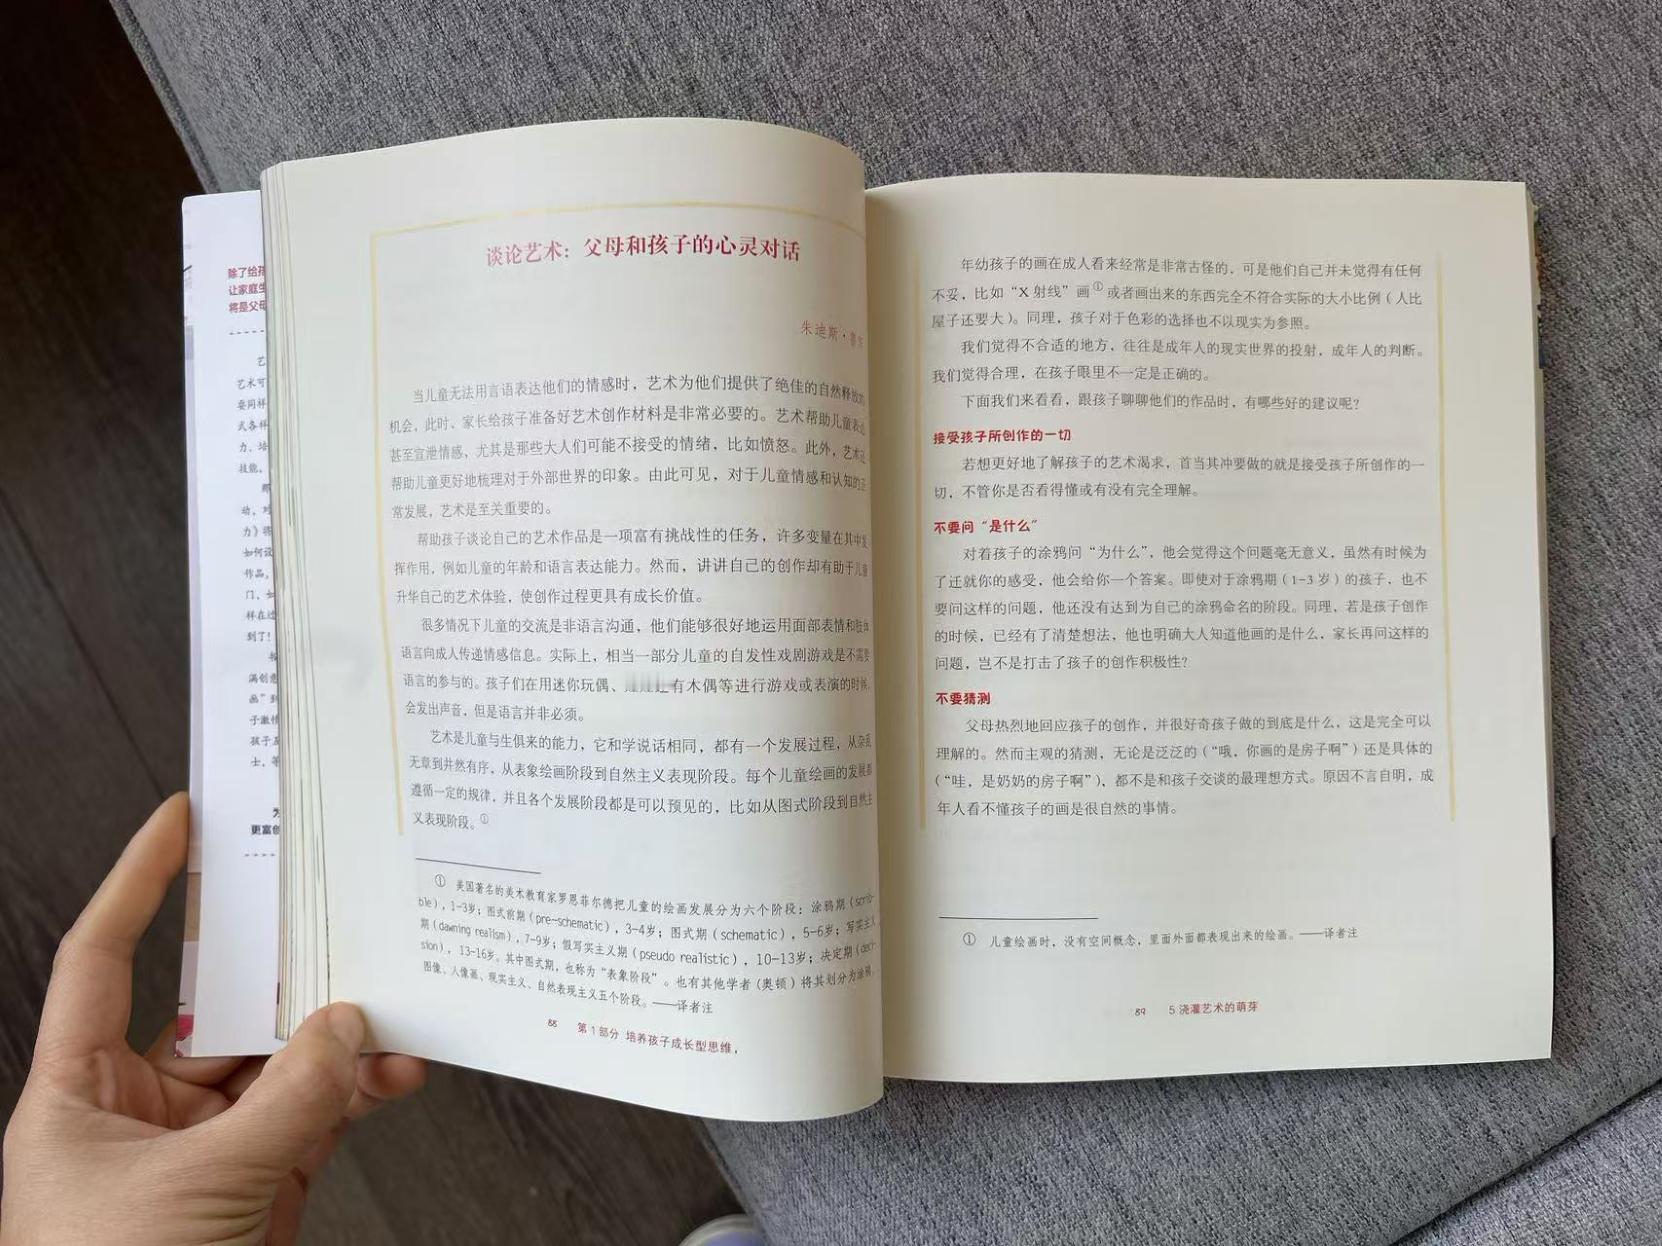 除了给孩
让家庭生
将是父母
艺
艺术可
要同样
式各样
力、培
技能,
那
动,对
力》将
如何设
作品,
门,如
样在过
到了!
满创意
画”到
子激情
孩子五
士,等
为
更富创
谈论艺术:父母和孩子的心灵对话
朱迪斯·鲁
当儿童无法用言语表达他们的情感时,艺术为他们提供了绝佳的自然释放的
机会,此时、家长给孩子准备好艺术创作材料是非常必要的。艺术帮助儿童表达
甚至宣泄情感,尤其是那些大人们可能不接受的情绪,比如愤怒。此外,艺术还
帮助儿童更好地梳理对于外部世界的印象。由此可见,对于儿童情感和认知的正
常发展,艺术是至关重要的。
帮助孩子谈论自己的艺术作品是一项富有挑战性的任务,许多变量在其中发
挥作用,例如儿童的年龄和语言表达能力。然而,讲讲自己的创作却有助于儿童
升华自己的艺术体验,使创作过程更具有成长价值。
很多情况下儿童的交流是非语言沟通,他们能够很好地运用面部表情和肢体
语言向成人传递情感信息。实际上,相当一部分儿童的自发性戏剧游戏是不需要
语言的参与的。孩子们在用迷你玩偶、有木偶等进行游戏或表演的时候,
会发出声音,但是语言并非必须。
艺术是儿童与生俱来的能力,它和学说话相同,都有一个发展过程,从杂乱
无章到井然有序,从表象绘画阶段到自然主义表现阶段。每个儿童绘画的发展都
遵循一定的规律,并且各个发展阶段都是可以预见的,比如从图式阶段到自然主
义表现阶段。①
① 美国著名的美术教育家罗恩菲尔德把儿童的绘画发展分为六个阶段:涂鸦期(scrib-
ble),1-3岁;图式前期(pre-schematic),3-4岁;图式期(schematic),5-6岁;写实主义
期(dawning realism),7-9岁;假写实主义期(pseudo realistic),10-13岁;决定期(deci-
sion),13-16岁。其中图式期,也称为“表象阶段”。也有其他学者(奥顿)将其划分为涂鸦、
图像、人像画、现实主义、自然表现主义五个阶段。——译者注
88 第1部分 培养孩子成长型思维,
年幼孩子的画在成人看来经常是非常古怪的,可是他们自己并未觉得有任何
不妥,比如“X射线”画①或者画出来的东西完全不符合实际的大小比例(人比
屋子还要大)。同理,孩子对于色彩的选择也不以现实为参照。
我们觉得不合适的地方,往往是成年人的现实世界的投射,成年人的判断。
我们觉得合理,在孩子眼里不一定是正确的。
下面我们来看看,跟孩子聊聊他们的作品时,有哪些好的建议呢?
接受孩子所创作的一切
若想更好地了解孩子的艺术渴求,首当其冲要做的就是接受孩子所创作的一
切,不管你是否看得懂或有没有完全理解。
不要问“是什么”
对着孩子的涂鸦问“为什么”,他会觉得这个问题毫无意义,虽然有时候为
了迁就你的感受,他会给你一个答案。即使对于涂鸦期(1-3岁)的孩子,也不
要问这样的问题,他还没有达到为自己的涂鸦命名的阶段。同理,若是孩子创作
的时候,已经有了清楚想法,他也明确大人知道他画的是什么,家长再问这样的
问题,岂不是打击了孩子的创作积极性?
不要猜测
父母热烈地回应孩子的创作,并很好奇孩子做的到底是什么,这是完全可以
理解的。然而主观的猜测,无论是泛泛的(“哦,你画的是房子啊”)还是具体的
(“哇,是奶奶的房子啊”)、都不是和孩子交谈的最理想方式。原因不言自明,成
年人看不懂孩子的画是很自然的事情。
① 儿童绘画时,没有空间概念,里面外面都表现出来的绘画。——译者注
89 5 浇灌艺术的萌芽